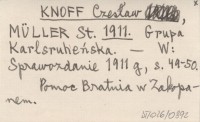 KNOFF Czesław,
MÜLLER St. 1911. Grupa
Karlsruheńska. — W:
Sprawozdanie 1911 g, s. 49-50.
Pomoc Bratnia w Zakopa-
nem.